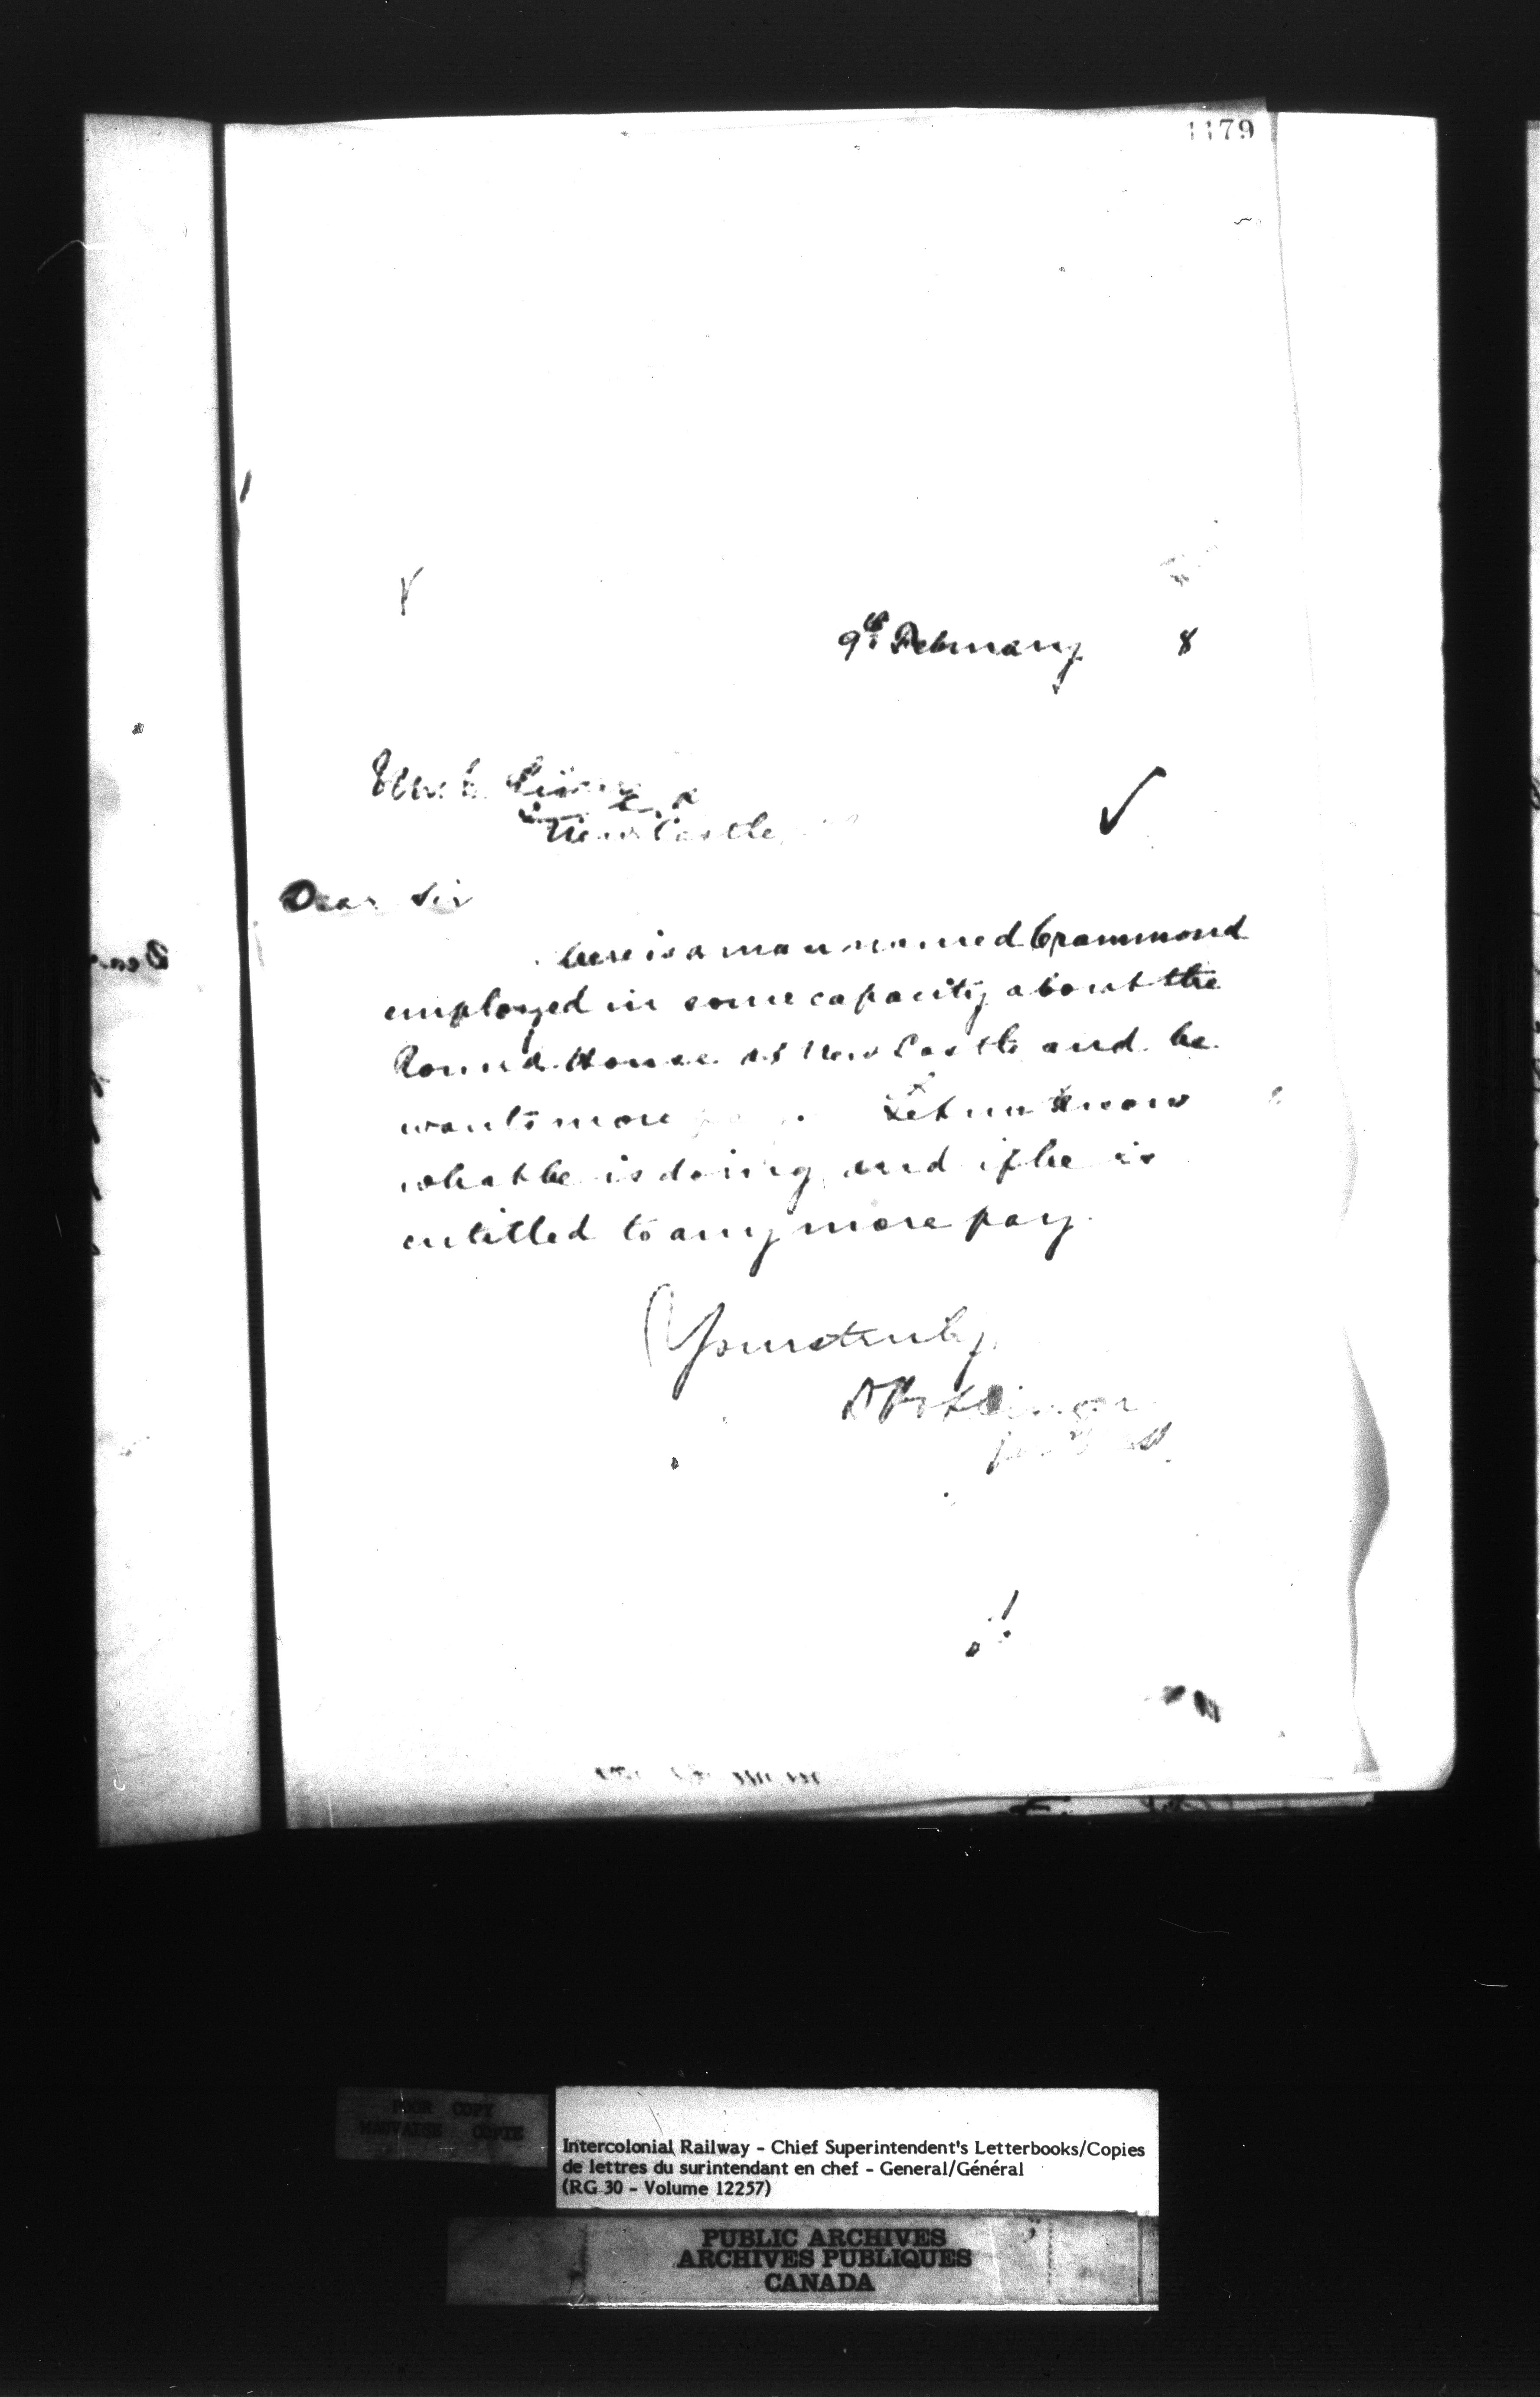 1179
9th February 8
New Castle
Dear Sir
here is a man named Crammond
employed in some capacity about the
Round House at New Castle and he
wants more Let me know
what he is doing and if he is
entitled to any more pay.
Yours truly
D Pottinger
POOR COPY
MAUVAISE COPIE
Intercolonial Railway - Chief Superintendent's Letterbooks/Copies
de lettres du surintendant en chef - General/Général
(RG 30 - Volume 12257)
PUBLIC ARCHIVES
ARCHIVES PUBLIQUES
CANADA